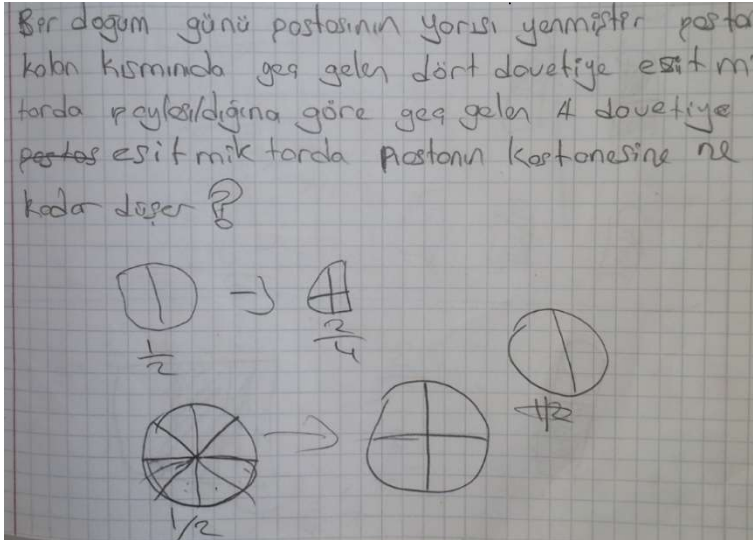 Bir doğum günü pastasının yarısı yenmiştir pasta
kalan kısmında geç gelen dört davetiye eşit m
tarda paylaşıldığına göre geç gelen 4 davetiye
eşit miktarda pastanın kaçtanesine ne
kadar düşer ?
1/2
2/4
1/2
1/2